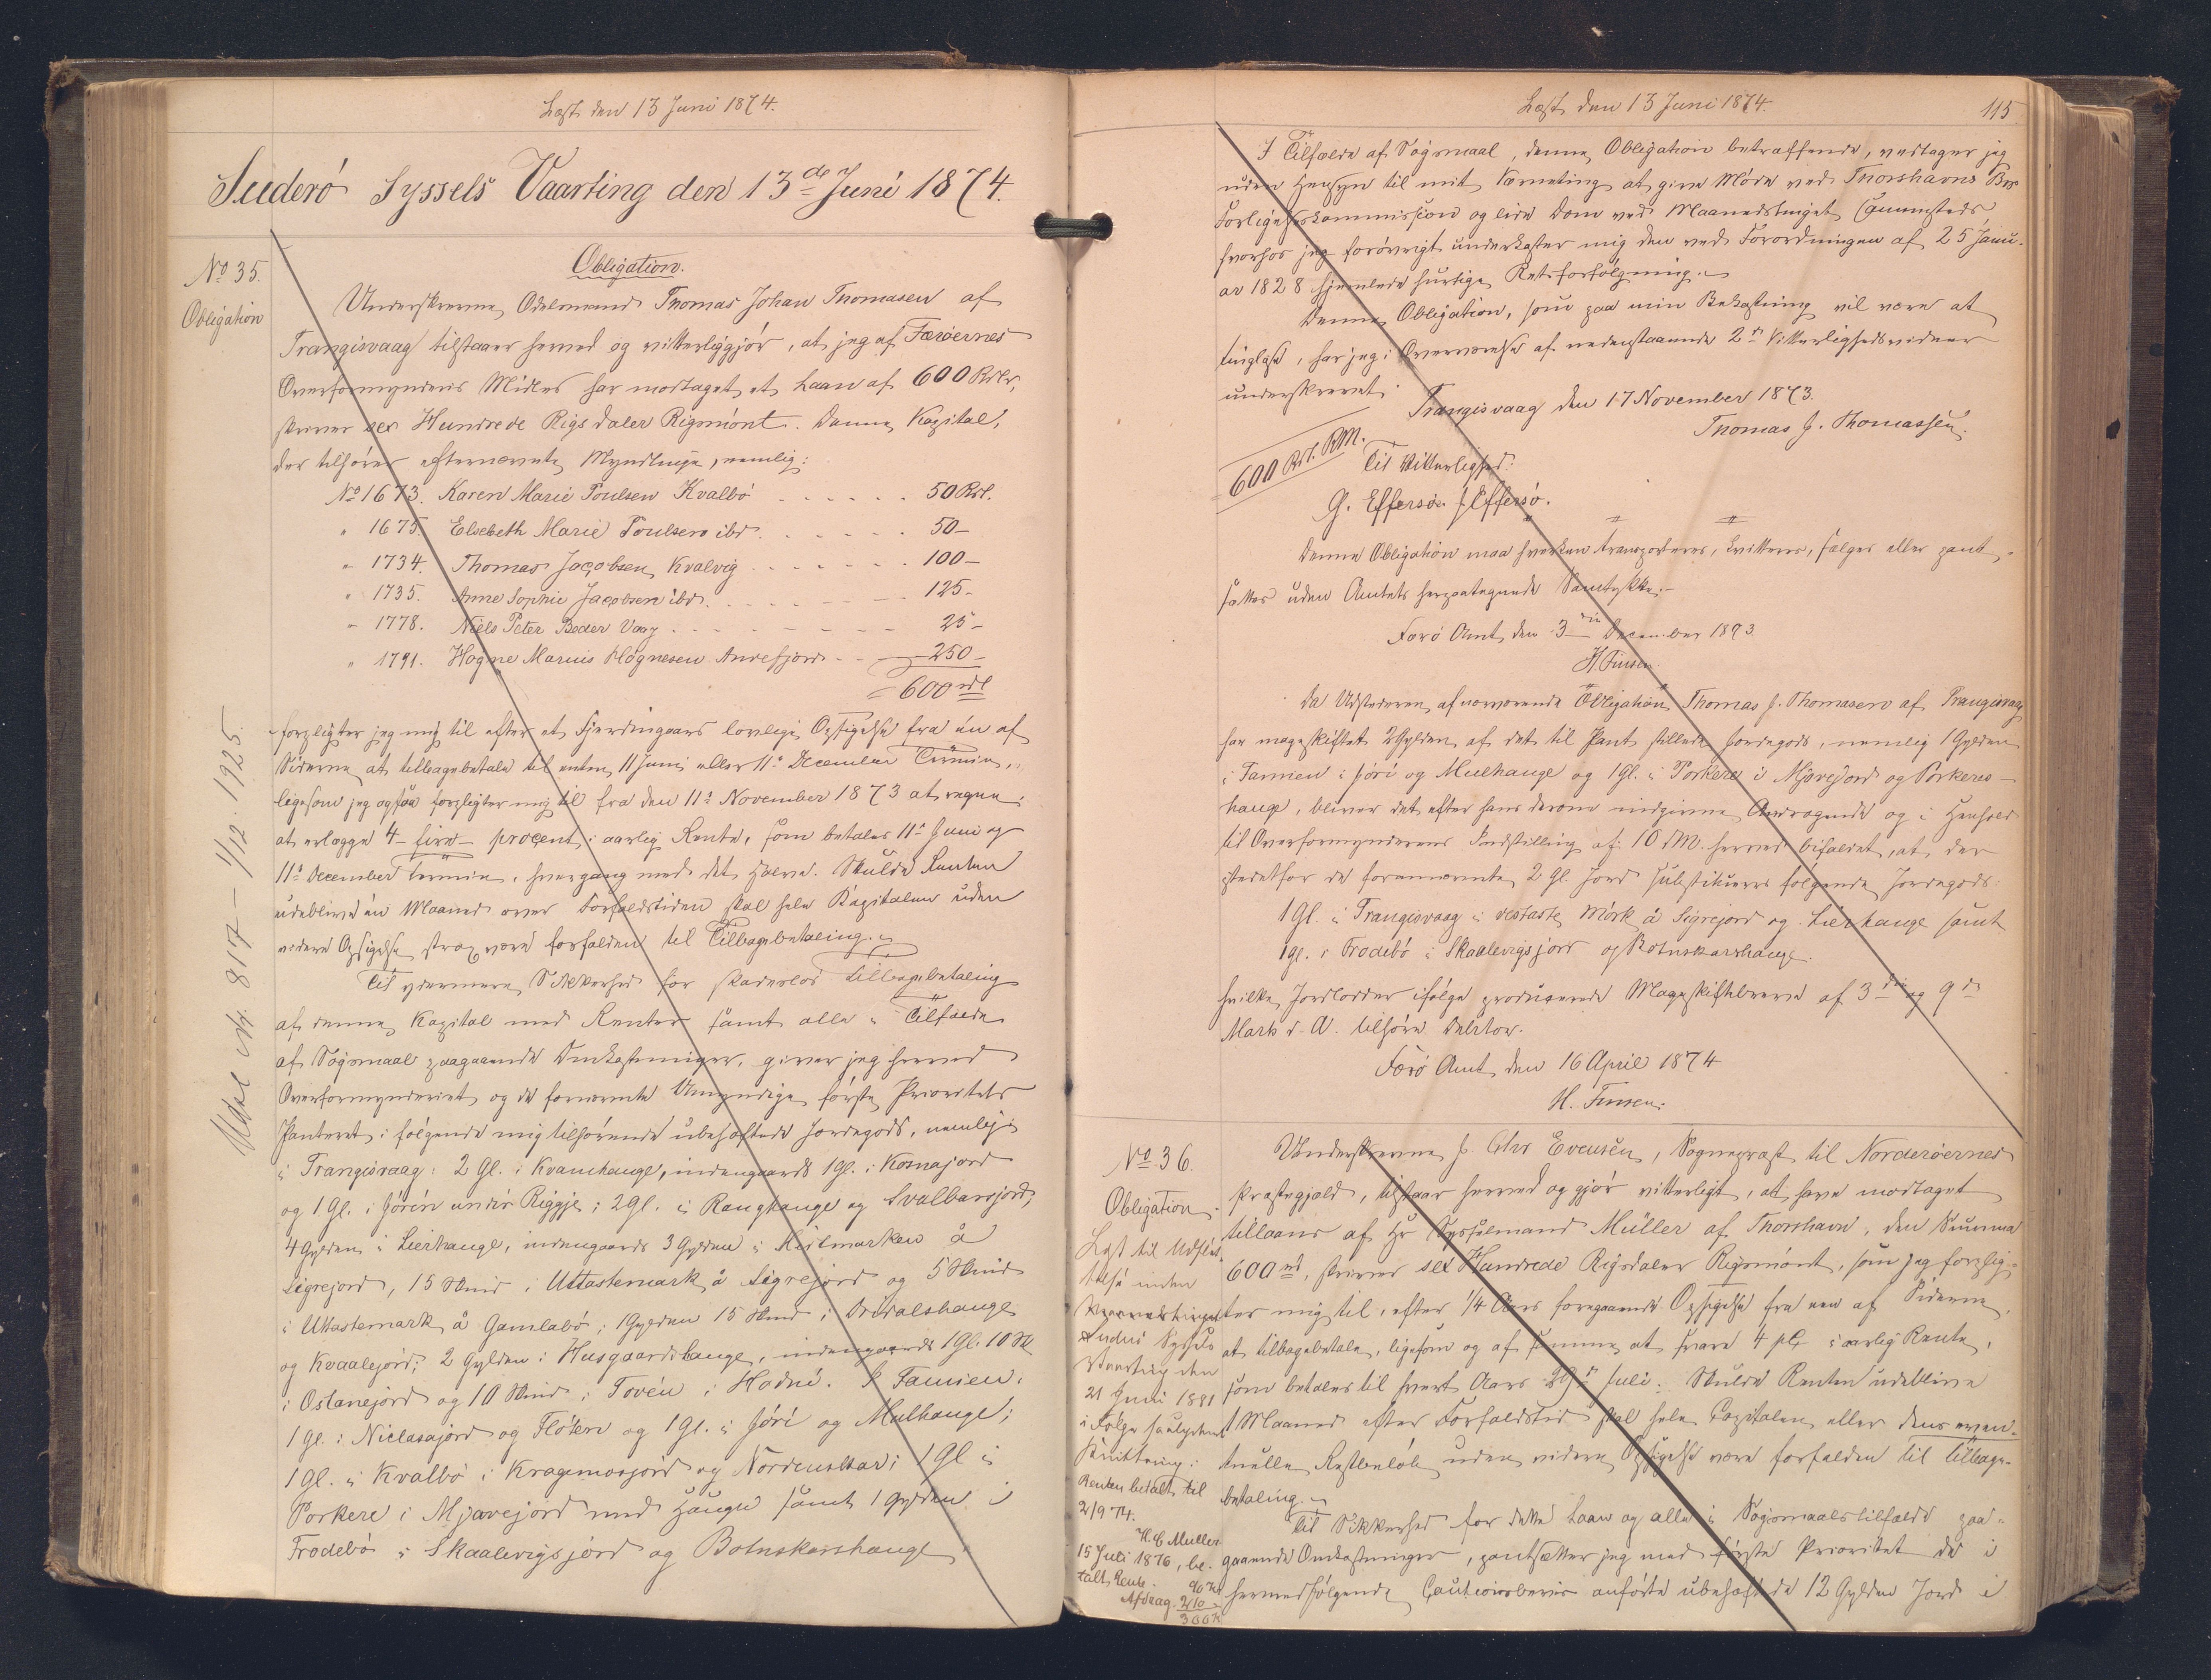 Læst den 13 Juni 1874.
Suderö Syssels Vaarting den 13de Juni 1874.
No 35.
Obligation
Obligation.
Underskrevne Odelsmand Thomas Johan Thomasen af
Trangisvaag tilstaaer herved og vitterliggjør, at jeg af Færøernes
Overformynderis Midler har modtaget et Laan af 600 Rdlr,
skriver sex Hundrede Rigsdaler Rigsmönt. Denne Kapital,
der tilhører efternævnte Myndlinge, nemlig:
No 1673. Karen Marie Poulsen Kvalbö 50 Rdl.
" 1675. Elsebeth Marie Poulsen ibd. 50 –
" 1734. Thomas Jacobsen Kvalvig 100 –
" 1735. Anne Sophie Jacobsen ibd. 125 –
" 1778. Niels Peter Beder Vaag 25 –
" 1791. Hogne Marius Högnesen Andefjord 250 –
600 rdl
forpligter jeg mig til efter et Fjerdingaars lovlig Opsigelse fra én af
Siderne at tilbagebetale til enten 11 Juni eller 11te December Termin,
ligesom jeg ogsaa forpligter mig til fra den 11te November 1873 at regne
at erlægge 4 – fire – procent i aarlig Rente, som betales 11te Juni og
11te December Termin, hvergang med det Halve. Skulde Renten
udeblive én Maaned over Forfaldstiden skal hele Kapitalen uden
videre Opsigelse strax være forfalden til Tilbagebetaling.
Til ydermere Sikkerhed for skadeslös Tilbagebetaling
af denne Kapital med Renter samt alle i Tilfælde
af Søgsmaal paagaaende Omkostninger, giver jeg herved
Overformynderiet og de fornævnte Umyndige første Prioritets
Panteret i følgende mig tilhørende ubehæftede Jordegods, nemlig:
i Trangisvaag: 2 Gl. i Kvamhauge, indengaards 1 Gl. i Kosnajord
og 1 Gl. i Jörin undir Riggje; 2 Gl. i Raughauge og Svalbarsjord,
4 Gylden i Lierhauge, indengaards 3 Gylden i Heilmarken å
Sigrejord, 15 Skind i Uttastemark å Sigrejord og 5 Skind
i Uttastemark å Gamlabö; 1 Gylden 15 Skind i Drödalshauge
og Kvaalejord; 2 Gylden i Husgaardshauge, indengaards 1 Gl. 10 Sk
i Ostanejord og 10 Skind i Tovén i Hodni. I Famien:
1 Gl. i Niclasajord og Flöteri og 1 Gl. i Jöri og Mulhauge;
1 Gl. i Kvalbö i Kragemosjord og Nordenskar; 1 Gl i
Porkere i Mjavejord med Hauge samt 1 Gylden i
Frodebö i Skaalevigsjord og Botnskarshauge
Udsl. Nr. 817 – 1/12. 1925.
Læst den 13 Juni 1874.
115
I Tilfælde af Søgsmaal, denne Obligation betræffende, vedtager jeg
uden Hensyn til mit Værneting at give Møde ved Thorshavns Byes
Forligelseskommission og lide Dom ved Maanedstinget sammesteds
hvorhos jeg forøvrigt underkaster mig den ved Forordningen af 25 Janu-
ar 1828 hjemlede hurtige Retsforfølgning.
Denne Obligation, som paa min Bekostning vil være at
tinglæse, har jeg i Overværelse af nedenstaaende 2de Vitterlighedsvidner
underskrevet.
Trangisvaag den 17 November 1873.
Thomas J. Thomassen.
600 Rdl. RM.
Til Vitterlighed:
G. Effersøe. J. Effersø.
Denne Obligation maa hverken transporteres, kvitteres, sælges eller pant-
sættes uden Amtets herpaategnede Samtykke.
Færö Amt, den 3die December 1873.
H. Finsen
Da Udstederen af nærværende Obligation Thomas J. Thomasen af Trangisvaag
har mageskiftet 2 Gylden af det til Pant stillede Jordegods, nemlig 1 Gylden
i Famien i Jöri og Mulhauge og 1 Gl. i Porkere i Mjavejord og Porkeres-
hauge, bliver det efter hans derom indgivne Andragende og i Henhold
til Overformynderens Indstilling af 10 d.M. herved bifaldet, at der
istedetfor de forannævnte 2 Gl. Jord substitueres følgende Jordegods:
1 Gl. i Trangisvaag i vestaste Mörk å Sigrejord og Lierhauge samt
1 Gl. i Frodebö i Skaalevigsjord og Botnskarshauge.
hvilke Jordlodder ifølge producerede Mageskiftebreve af 3die og 9de
Marts d. A. tilhøre Debitor.
Færö Amt, den 16 April 1874
H. Finsen.
No 36.
Obligation.
Lyst til Udslet-
telse inden
Værnetinget
Suderö Syssels
Vaarting den
21 Juni 1881
i Følge saalydende
Kvittering:
Renten betalt til
2/9 74.
H. C Müller
15 Juli 1876, be-
talt Rente. 90 Kr
Afdrag. 210 –
300 Kr
Underskrevne J. Chr Evensen, Sognepræst til Norderöernes
Præstegjæld, tilstaar herved og gjör vitterligt, at have modtaget
tillaans af Hr Sysselmand Müller af Thorshavn, den Summa
600 rd, skriver sex Hundrede Rigsdaler Rigsmönt, som jeg forplig-
ter mig til, efter 1/4 Aars foregaaende Opsigelse fra een af Siderne,
at tilbagebetale, ligesom og af samme at svare 4 pCt i aarlig Rente,
som betales til hvert Aars 29de Juli. Skulde Renten udeblive
1 Maaned efter Forfaldstid skal hele Capitalen eller dens even-
tuelle Restbeløb uden videre Opsigelse være forfalden til Tilbage-
betaling.
Til Sikkerhed for dette Laan og alle i Søgsmaalstilfælde paa-
gaaende Omkostninger, pantsætter jeg med første Prioritet de i
hermedfølgende Cautionsbevis anførte ubehæftede 12 Gylden Jord i